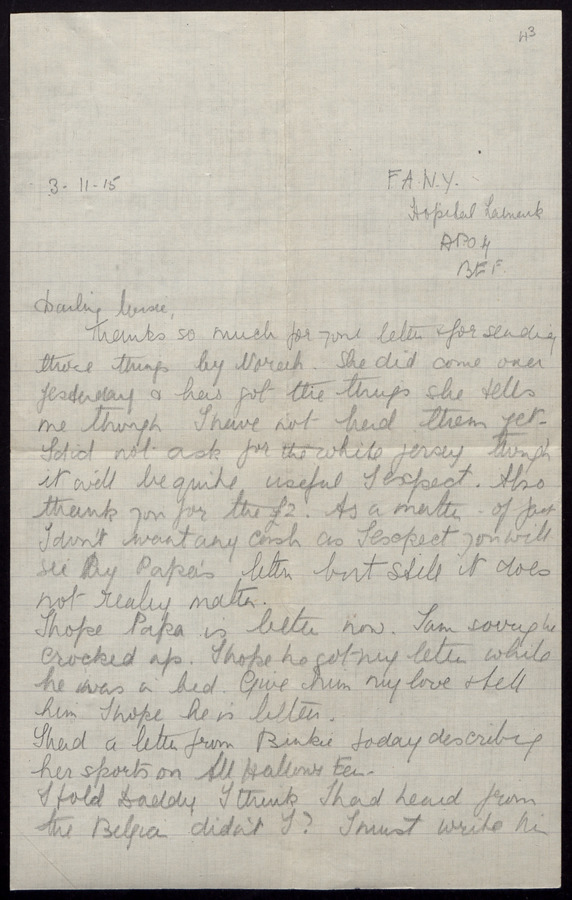 43
3-11-15
F.A.N.Y.
Hopital Lamark
APO 4
BEF.
Darling
Thanks so much for your letter & for sending
those things by Norah. She did come over
yesterday & has got the things she tells
me though I have not had them yet.
I did not ask for the white jersey though
it will be quite useful I expect. Also
thank you for the £2. As a matter of fact
I don't want any cash as I expect you will
see by Papa's letter but still it does
not really matter.
I hope Papa is better now. I am sorry he
crocked up. I hope he got my letter while
he was in bed. Give him my love & tell
him I hope he is better.
I had a letter from Binkie today describing
her sports on All Hallows Een.
I told Daddy I think I had heard from
the Belgian didn't I? I must write him